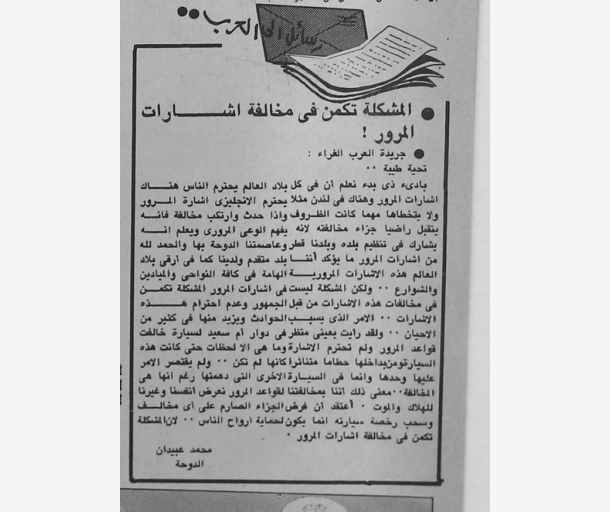 رسائل الى العرب
● المشكلة تكمن فى مخالفة اشــــارات
المرور !
● جريدة العرب الغراء :
تحية طيبة ٠٠
بادىء ذى بدء نعلم أن فى كل بلاد العالم يحترم الناس هنــاك
اشارات المرور وهناك فى لندن مثلا يحترم الانجليزى اشارة المــرور
ولا يتخطاها مهما كانت الظروف واذا حدث وارتكب مخالفة فانــه
يتقبل راضيا جزاء مخالفته لانه يفهم الوعى المرورى ويعلم انــه
يشارك فى تنظيم بلده وبلدنا قطر وعاصمتنا الدوحة بها والحمد لله
من اشارات المرور ما يؤكد أننــا بلد متقدم ولدينا كما فى أرقى بلاد
العالم هذه الاشارات المروريــة الهامة فى كافة النواحى والميادين
والشوارع ٠٠ ولكن المشكلة ليست فى اشارات المرور المشكلة تكمــن
فى مخالفات هذه الاشارات من قبل الجمهور وعدم احترام هــذه
الاشارات ٠٠ الامر الذى يسبــب الحوادث ويزيد منها فى كثير من
الاحيان ٠٠ ولقد رايت بعينى منظر فى دوار أم سعيد لسيارة خالفت
قواعد المرور ولم تحترم الاشارة وما هى الا لحظات حتى كانت هذه
السيارة ومن بداخلها حطاما متناثرا كانها لم تكن ٠٠ ولم يقتصر الامر
عليها وحدها وانما فى السيــارة الاخرى التى دهمتها رغم انها هى
المخالفة ٠٠ معنى ذلك أننا بمخالفتنا لقواعد المرور نعرض أنفسنا وغيرنا
للهلاك والموت ٠ أعتقد أن فرض الجزاء الصارم على أى مخالــف
وسحب رخصة سيارته انما يكون لحماية أرواح الناس ٠٠ لان المشكلة
تكمن فى مخالفة اشارات المرور ٠
محمد عبيدان
الدوحة